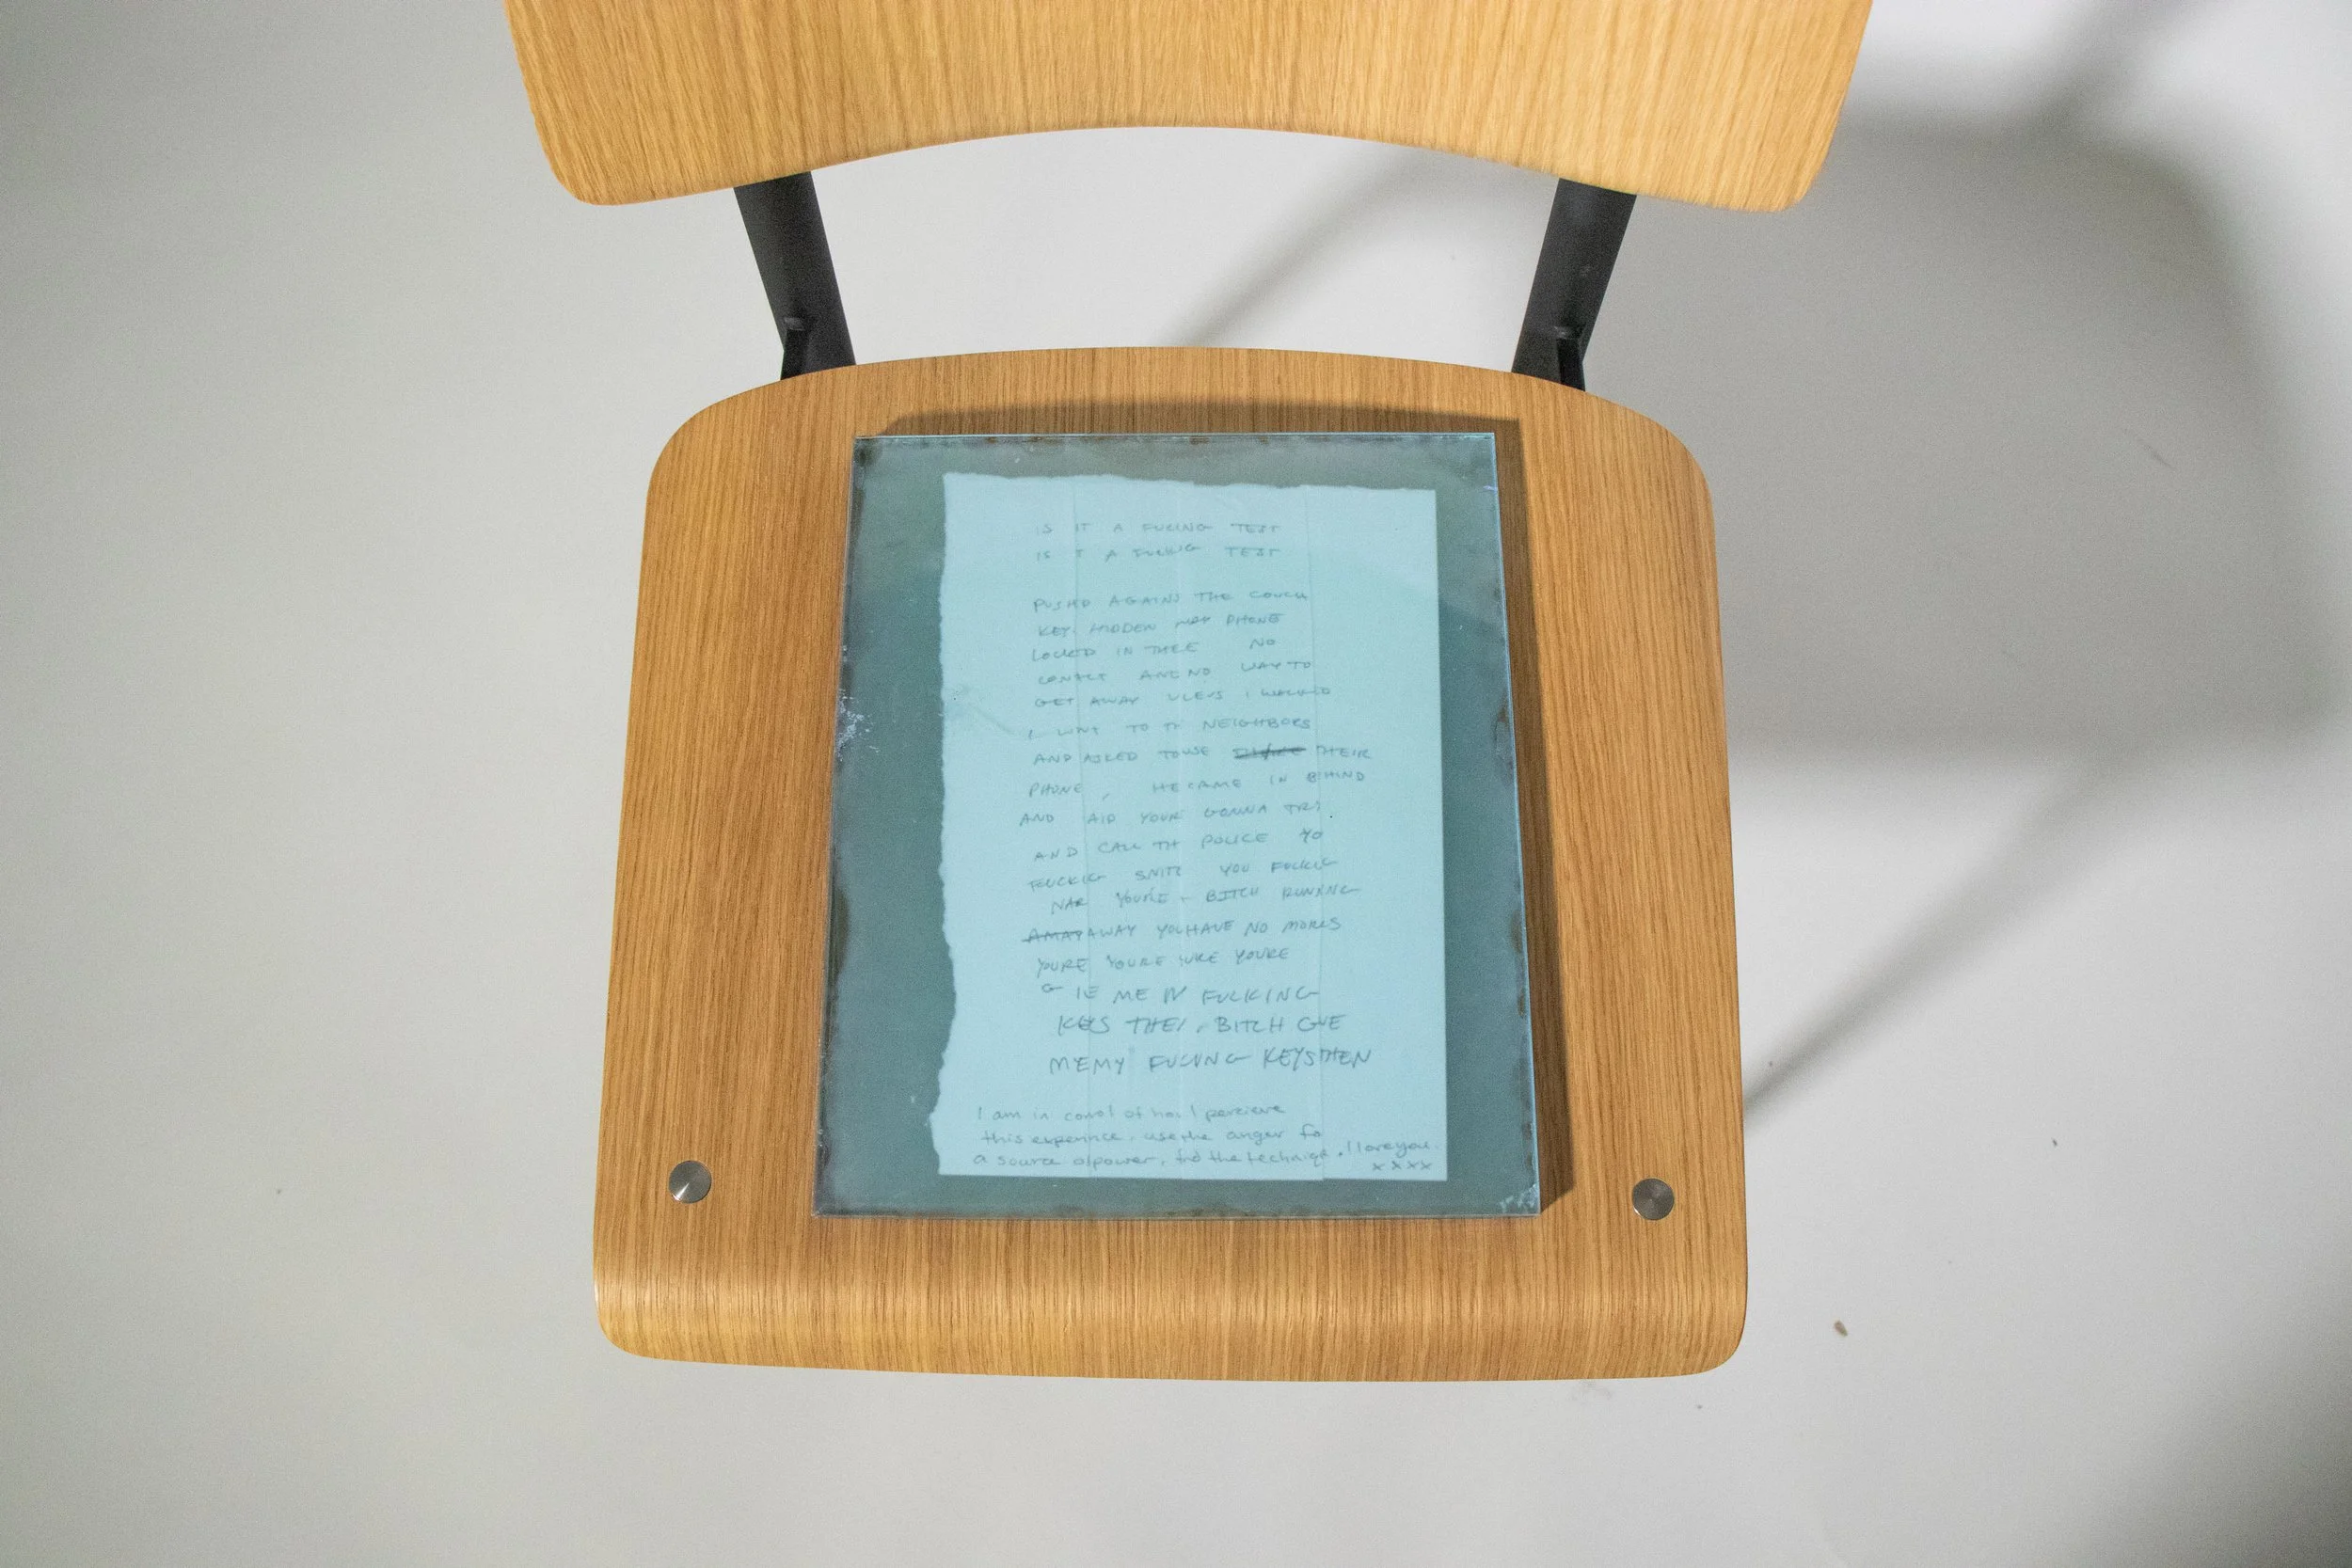 IS IT A FUCING TEST
IS T A FUCKING TEST
PUSHD AGAINS THE COUCH
KEY HIDDEN MY PHONE
LOCKED IN THERE NO
CONTACT AND NO WAY TO
GET AWAY I WALKED
I WNT TO TH NEIGHBORS
AND ASKED TO USE THEIR
PHONE, HE CAME IN BEHIND
AND AID YOUR GONNA TRY
AND CALL TH POLICE YO
FUCKIG SNITC YOU FUCKIG
YOURE BITCH RUNNING
AMAY AWAY YOU HAVE NO MORES
YOURE YOURE YURE YOURE
G IE ME MY FUCKING
KEYS THEN BITCH GIVE
ME MY FUCKING KEYS THEN
I am in conrol of how I percieve
this experince. use the anger fo
a source of power, find the techniqe. I love you.
xxxx